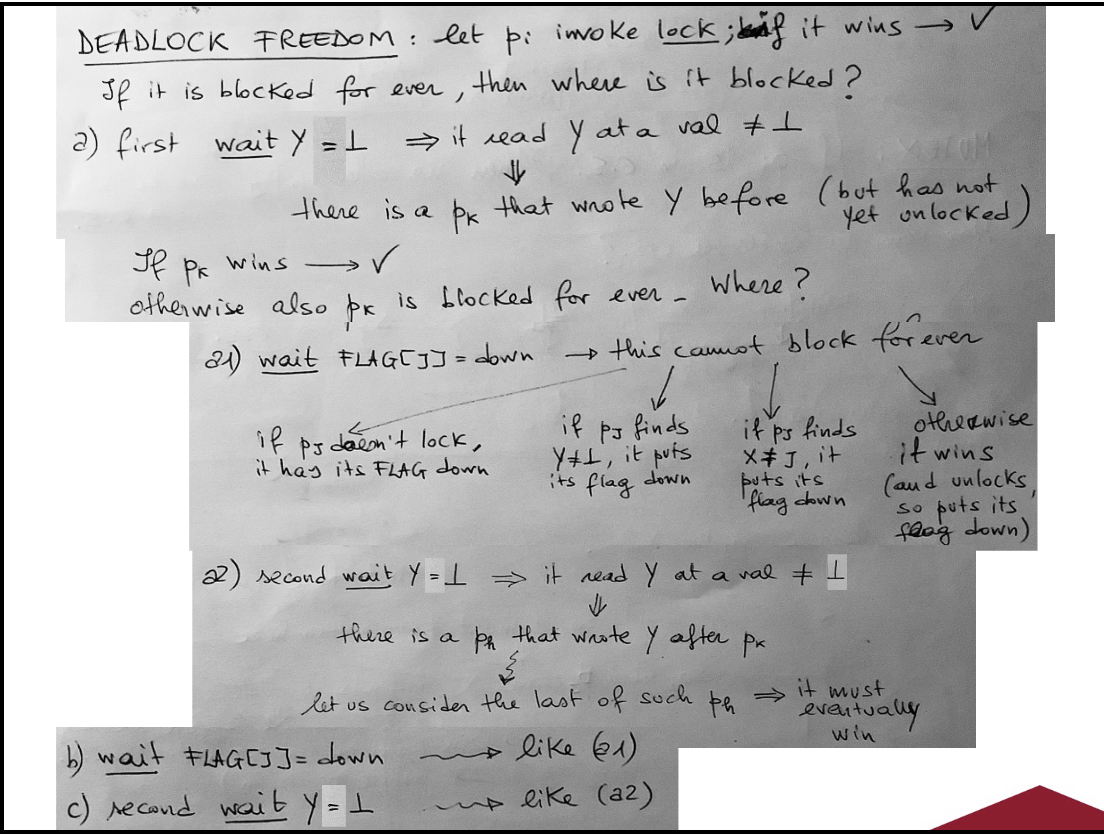 DEADLOCK FREEDOM : let pi invoke lock ; if it wins → ✓
If it is blocked for ever, then where is it blocked?
a) first wait Y = ⊥ ⇒ it read Y at a val ≠ ⊥
⇓
there is a pk that wrote Y before (but has not
yet unlocked)
If pk wins → ✓
otherwise also pk is blocked for ever - Where?
a1) wait FLAG[J] = down → this cannot block for ever
if pJ doesn't lock,
it has its FLAG down
if pJ finds
Y≠⊥, it puts
its flag down
if pJ finds
X≠J, it
puts its
flag down
otherwise
it wins
(and unlocks,
so puts its
flag down)
a2) second wait Y = ⊥ ⇒ it read Y at a val ≠ ⊥
⇓
there is a ph that wrote Y after pk
let us consider the last of such ph ⇒ it must
eventually
win
b) wait FLAG[J] = down ⇝ like (a1)
c) second wait Y = ⊥ ⇝ like (a2)